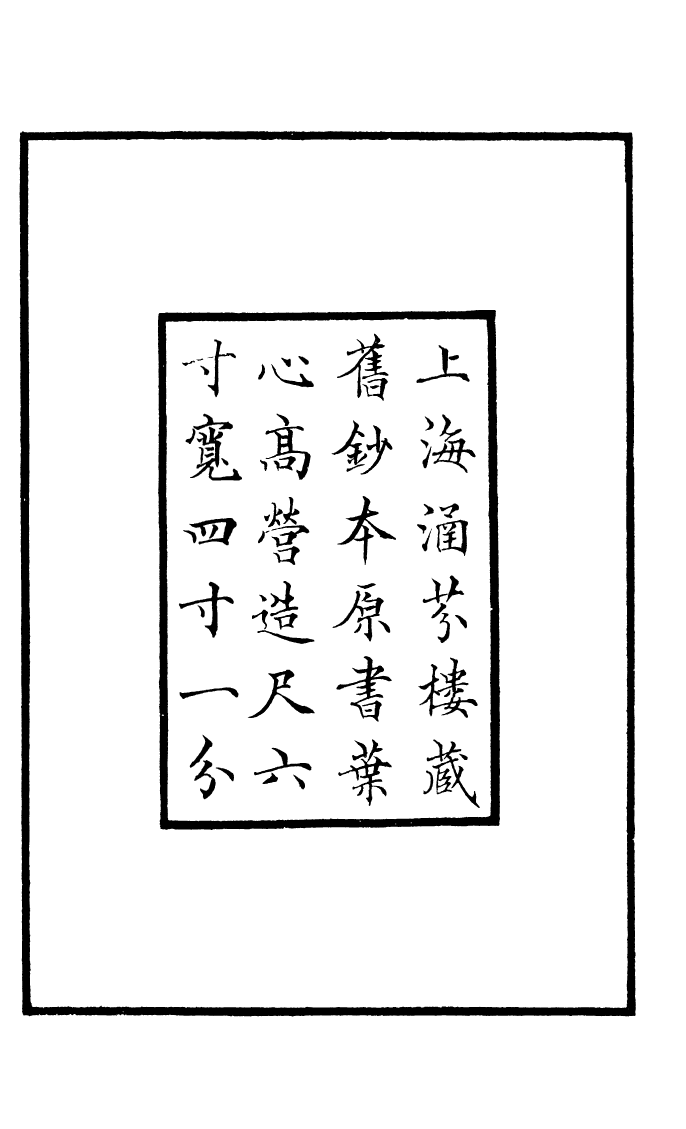 上海涵芬樓藏
舊鈔本原書葉
心高營造尺六
寸寬四寸一分